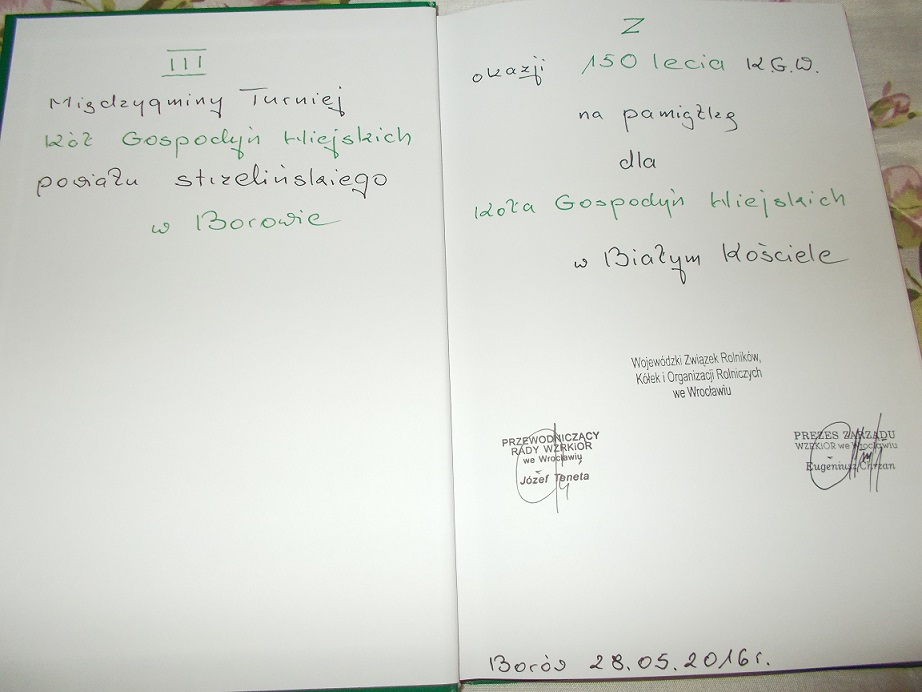 III
Międzygminy Turniej
Kół Gospodyń Wiejskich
powiatu strzelińskiego
w Borowie
Z
okazji 150 lecia K.G.W.
na pamiątkę
dla
Koła Gospodyń Wiejskich
w Białym Kościele
Wojewódzki Związek Rolników,
Kółek i Organizacji Rolniczych
we Wrocławiu
PRZEWODNICZĄCY
RADY WZRKiOR
we Wrocławiu
Józef Teneta
PREZES ZARZĄDU
WZRKiOR we Wrocławiu
Eugeniusz Chrzan
Borów 28.05.2016r.